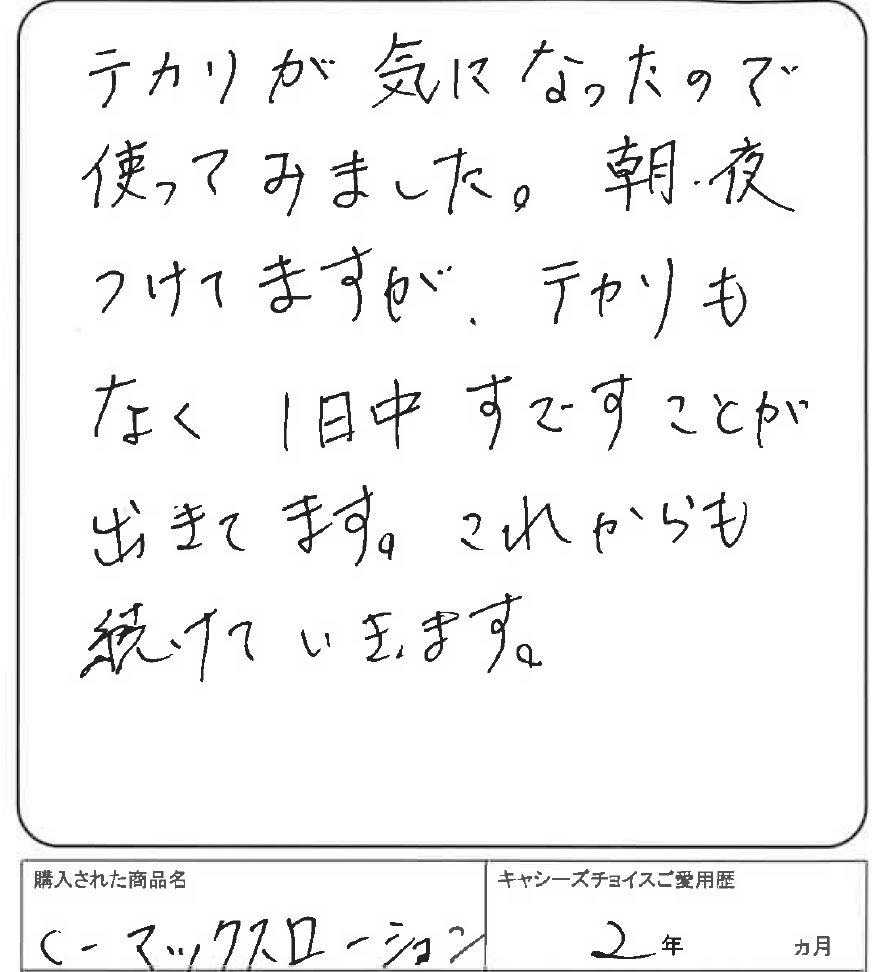 テカリが気になったので
使ってみました。朝・夜
つけてますが、テカリも
なく1日中すですことが
出きてます。これからも
続けていきます。
購入された商品名
キャシーズチョイスご愛用歴
C-マックスローション
2年 カ月